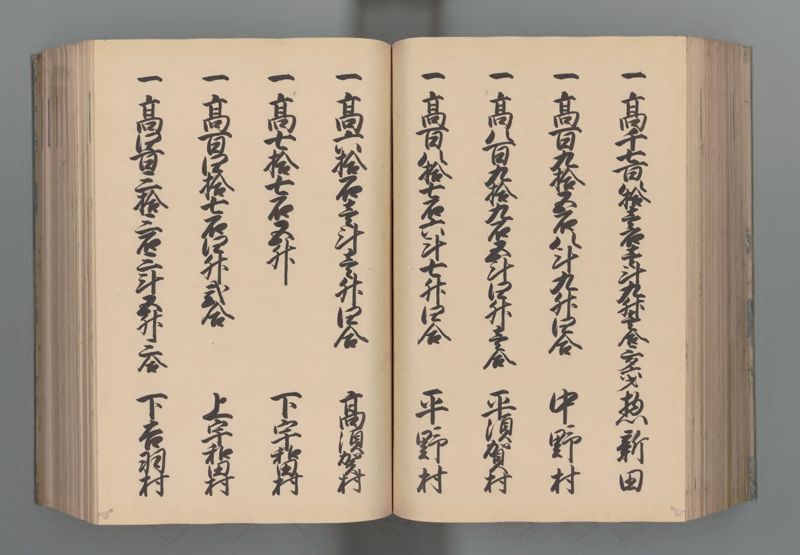 一 高千七百八拾壱石壱斗九升壱合三勺才 惣新田
一 高百九拾五石八斗九升四合 中野村
一 高八百九拾九石五斗四升壱合 平須賀村
一 高百八拾七石六斗七升四合 平野村
一 高六拾石壱斗壱升四合 高須賀村
一 高七拾七石五升 下宇和田村
一 高百四拾七石四升弐合 上宇和田村
一 高四百三拾三石二斗五升三合 下吉羽村